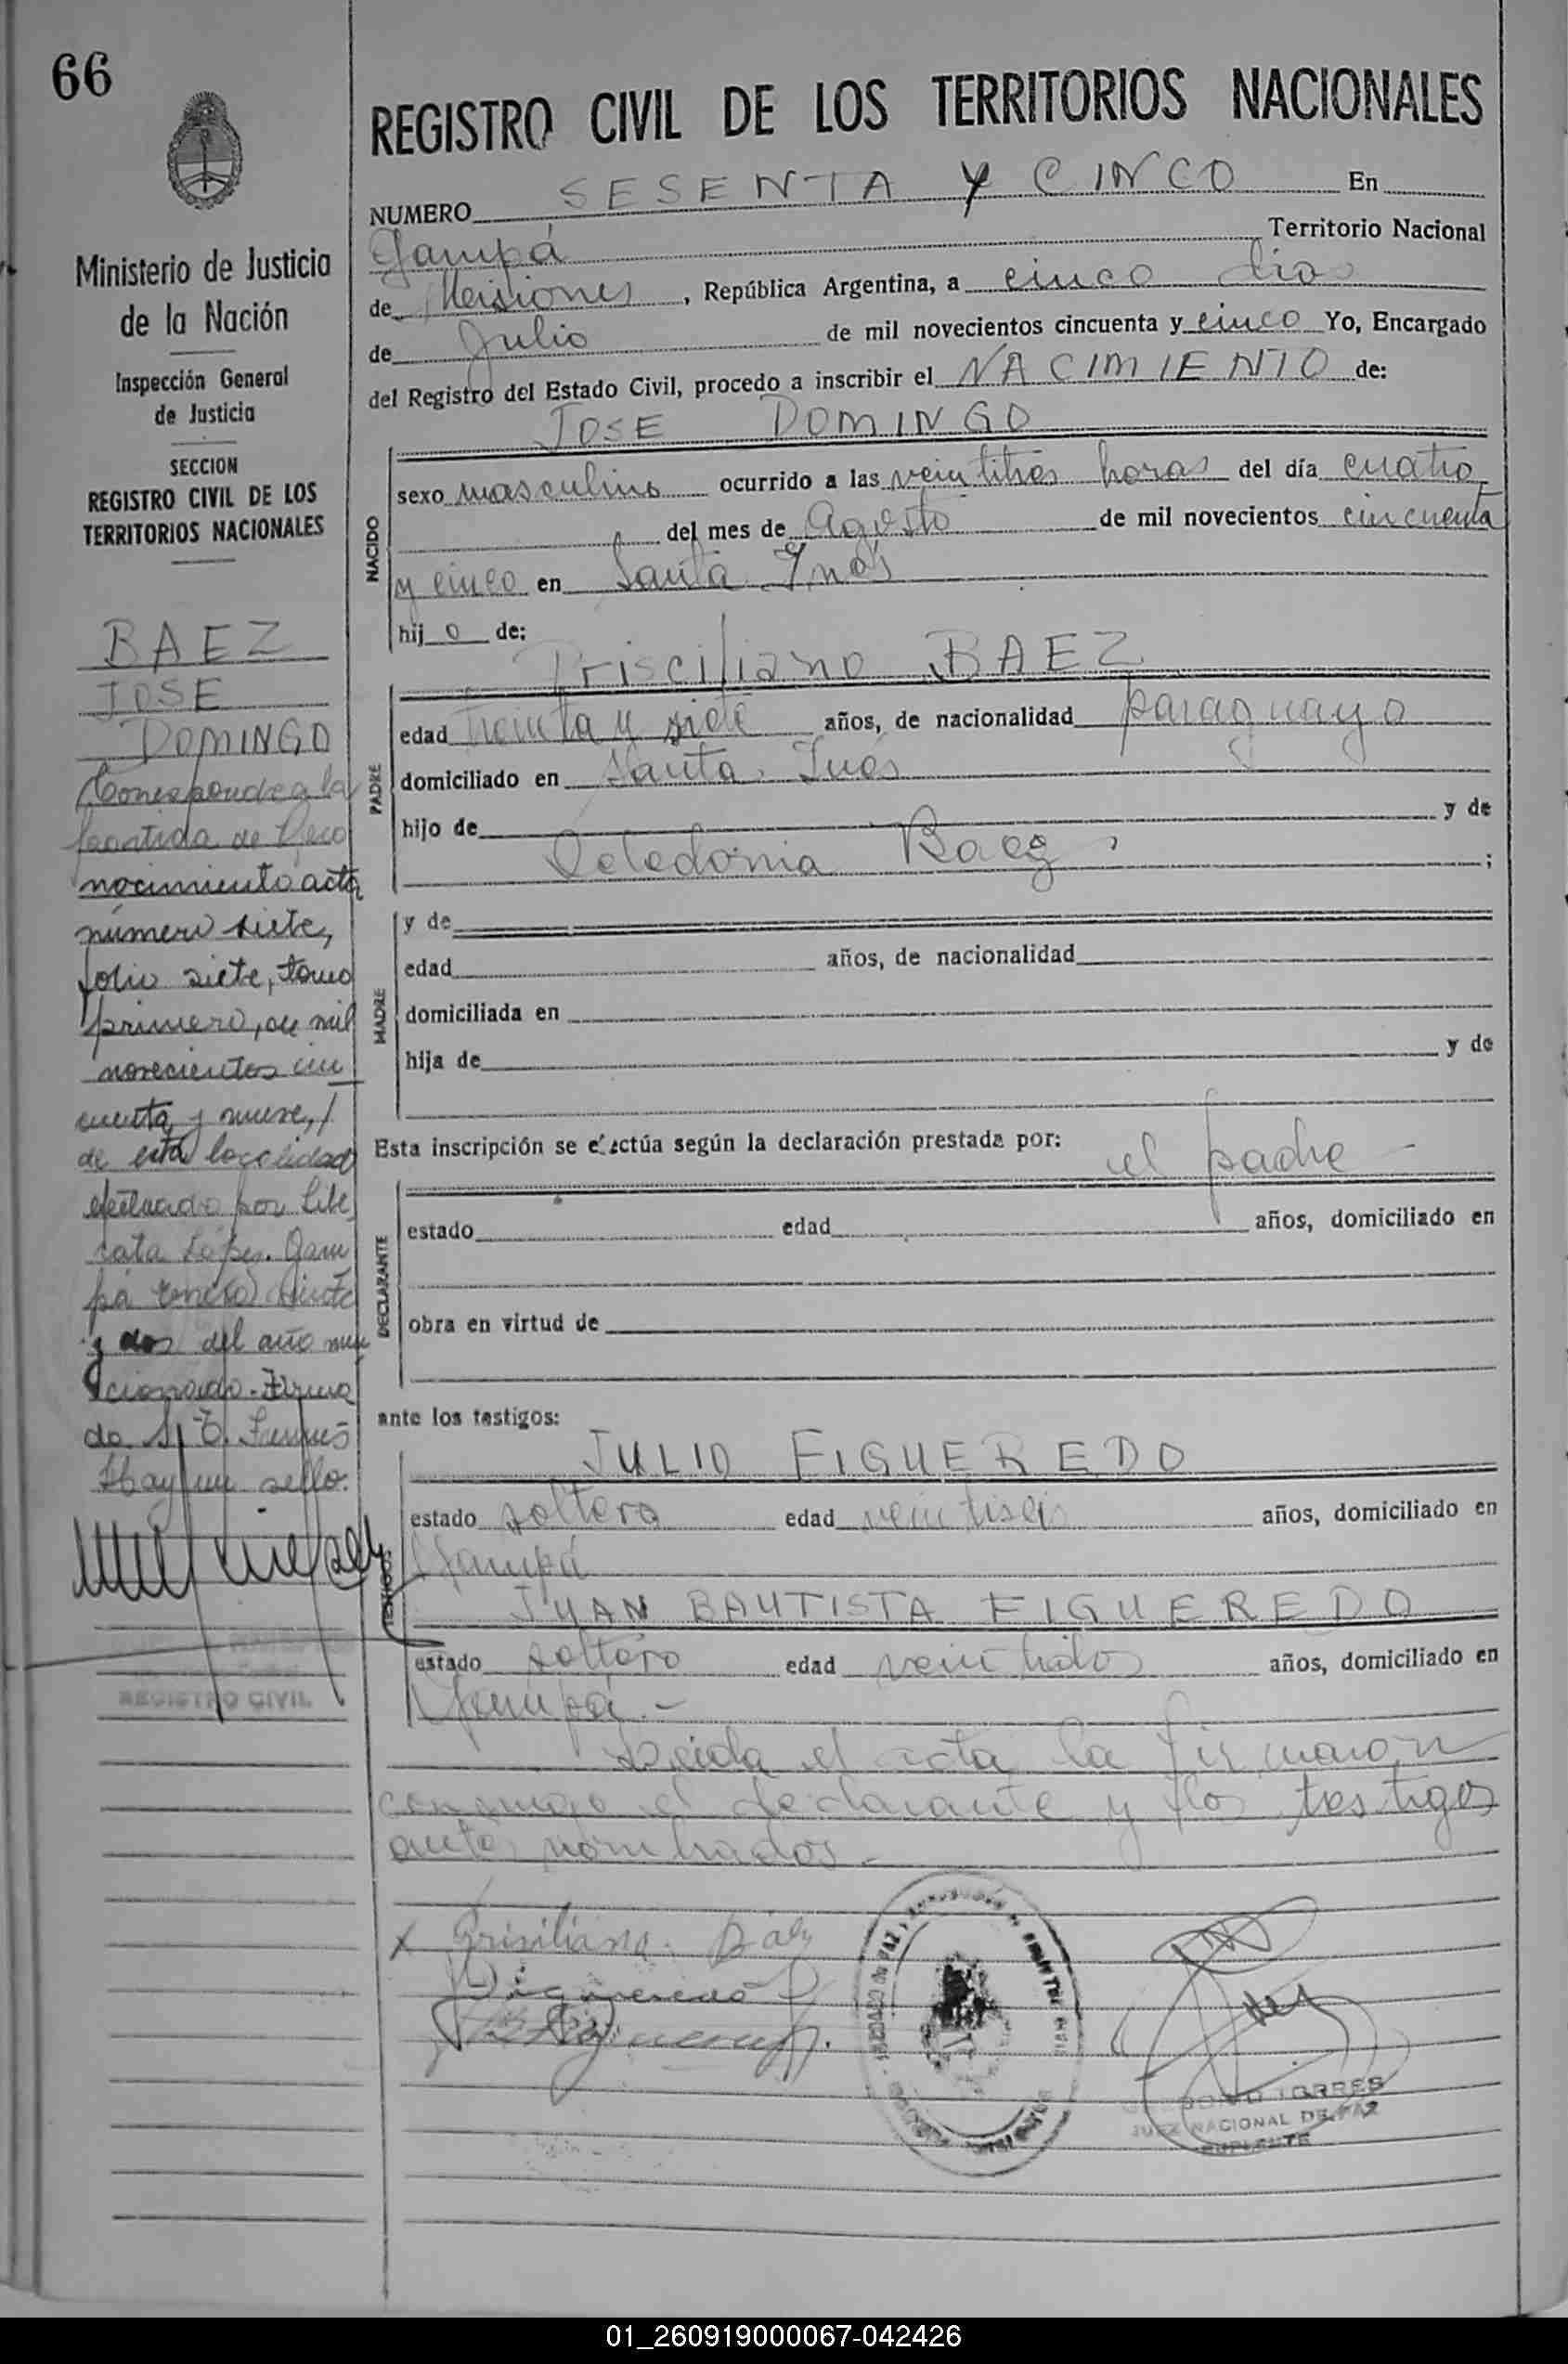 66
REGISTRO CIVIL DE LOS TERRITORIOS NACIONALES
Ministerio de Justicia
de la Nación
Inspección General
de Justicia
SECCION
REGISTRO CIVIL DE LOS
TERRITORIOS NACIONALES
BAEZ
JOSE
DOMINGO
Corresponde a la
partida de Reco
nocimiento acta
número siete,
folio siete, tomo
primero, de mil
novecientos cin
cuenta y nueve, /
de esta localidad
efectuado por Libe
rata López. Gam
pá enero veinte
y dos del año men
cionado. Firma
do
Hay un sello.
REGISTRO CIVIL
NUMERO SESENTA Y CINCO En
Yampá Territorio Nacional
de Misiones, República Argentina, a cinco dias
de Julio de mil novecientos cincuenta y cinco Yo, Encargado
del Registro del Estado Civil, procedo a inscribir el NACIMIENTO de:
JOSE DOMINGO
NACIDO
sexo masculino ocurrido a las veintitres horas del día cuatro
del mes de Agosto de mil novecientos cincuenta
y cinco en Santa Inés
hijo de:
Prisciliano BAEZ
PADRE
edad treinta y siete años, de nacionalidad paraguayo
domiciliado en Santa Inés
hijo de y de
Celedonia Baez ;
MADRE
y de
edad años, de nacionalidad
domiciliada en
hija de y de
Esta inscripción se efectúa según la declaración prestada por: el padre
DECLARANTE
estado edad años, domiciliado en
obra en virtud de
ante los testigos:
TESTIGOS
JULIO FIGUEREDO
estado soltero edad veintiseis años, domiciliado en
Yampá
JUAN BAUTISTA FIGUEREDO
estado soltero edad veintidos años, domiciliado en
Yampá.-
Leida el acta la firmaron
conmigo el declarante y los testigos
antes nombrados.-
x Prisiliano Báez
Figueredo
TORRES
JUEZ NACIONAL DE PAZ
SUPLENTE
01_260919000067-042426